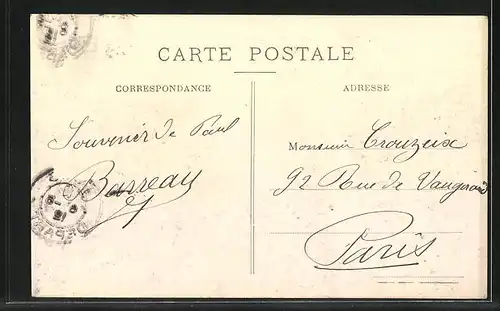 CARTE POSTALE
CORRESPONDANCE
ADRESSE
Souvenir de Paul
Barreau
Monsieur Crouzeix
92 Rue de Vaugirard
Paris